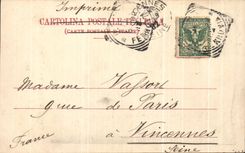 Imprimé
CARTOLINA POSTALE ITALIANA
(CARTE POSTALE D'ITALIE)
Madame Vassort
9 rue de Paris
à Vincennes
Seine
France